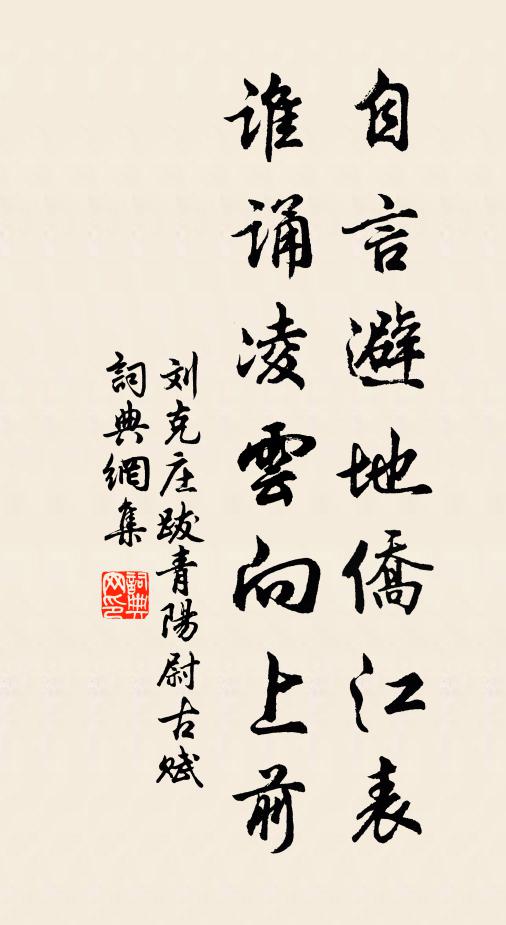 自言避地僑江表
誰誦凌雲向上前
刘克庄跋青陽尉古赋
詞典網集
詞典网印